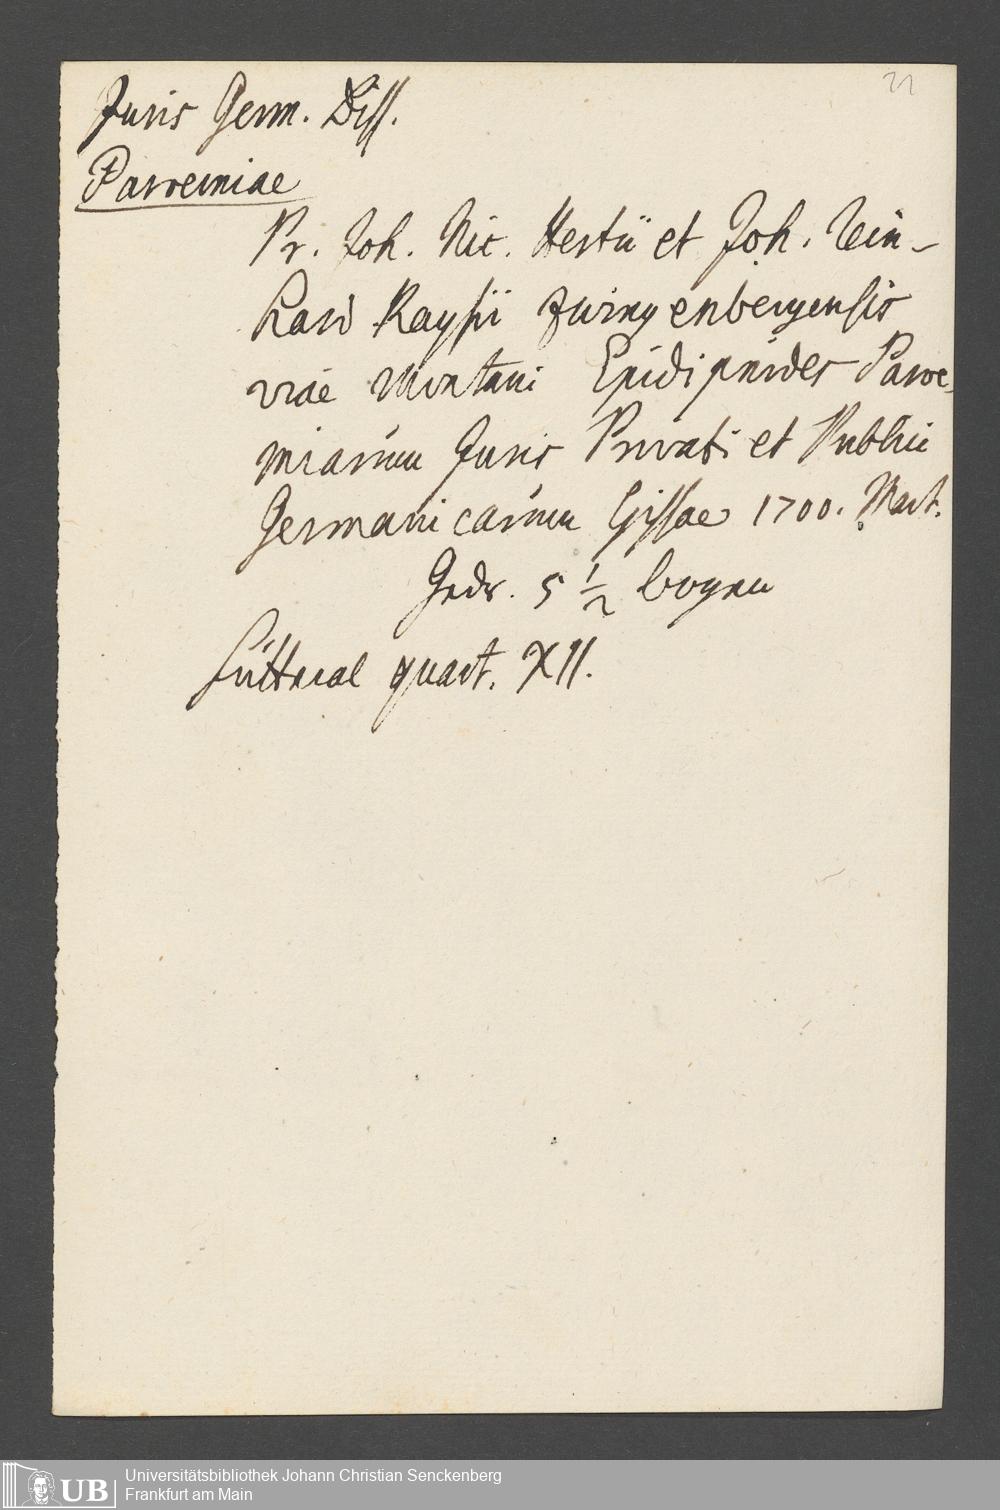 21
Juris Germ. Diss.
Paroemiae
Pr. Joh. Nic. Hertii et Joh. Rein-
hard Raysii Zwingenbergensis
viae Montani Epidipnides Paroe-
miarum Juris Privati et Publici
Germanicarum Gissae 1700. Mart.
Gedr. 5 1/2 bogen
quart. XII.
UB Universitätsbibliothek Johann Christian Senckenberg
Frankfurt am Main